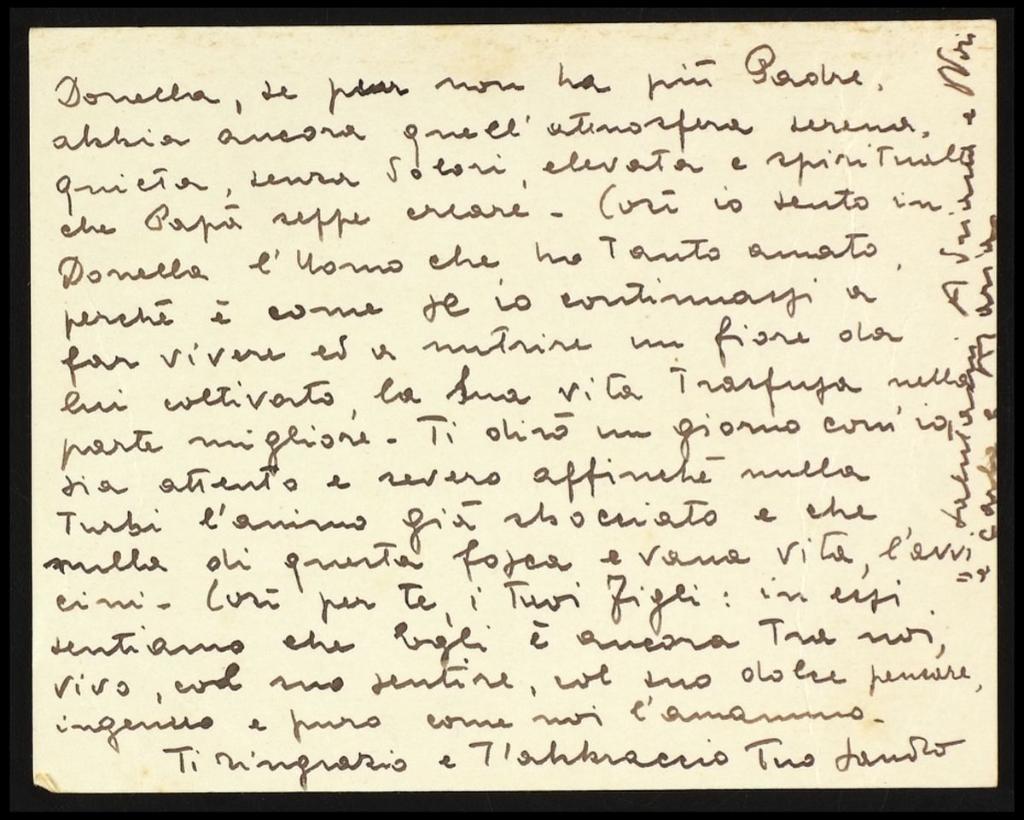 Donella, se pur non ha più Padre,
abbia ancora quell'atmosfera serena,
quieta, senza dolori, elevata e spirituale
che Papà seppe creare - Così io sento in
Donella l'Uomo che ho tanto amato,
perché è come se io continuassi a
far vivere ed a nutrire un fiore da
lui coltivato, la Sua vita trasfusa nella
parte migliore - Ti dirò un giorno com'io
sia attento e severo affinché nulla
turbi l'animo già sbocciato e che
nulla di questa fosca e vana vita, l'avvi
cini - Così per te, i tuoi Figli: in essi
sentiamo che Egli è ancora tra noi,
vivo, col suo sentire, col suo dolce pensare,
ingenuo e puro come noi l'amammo -
Ti ringrazio e t'abbraccio Tuo Sandro
e Carlo e